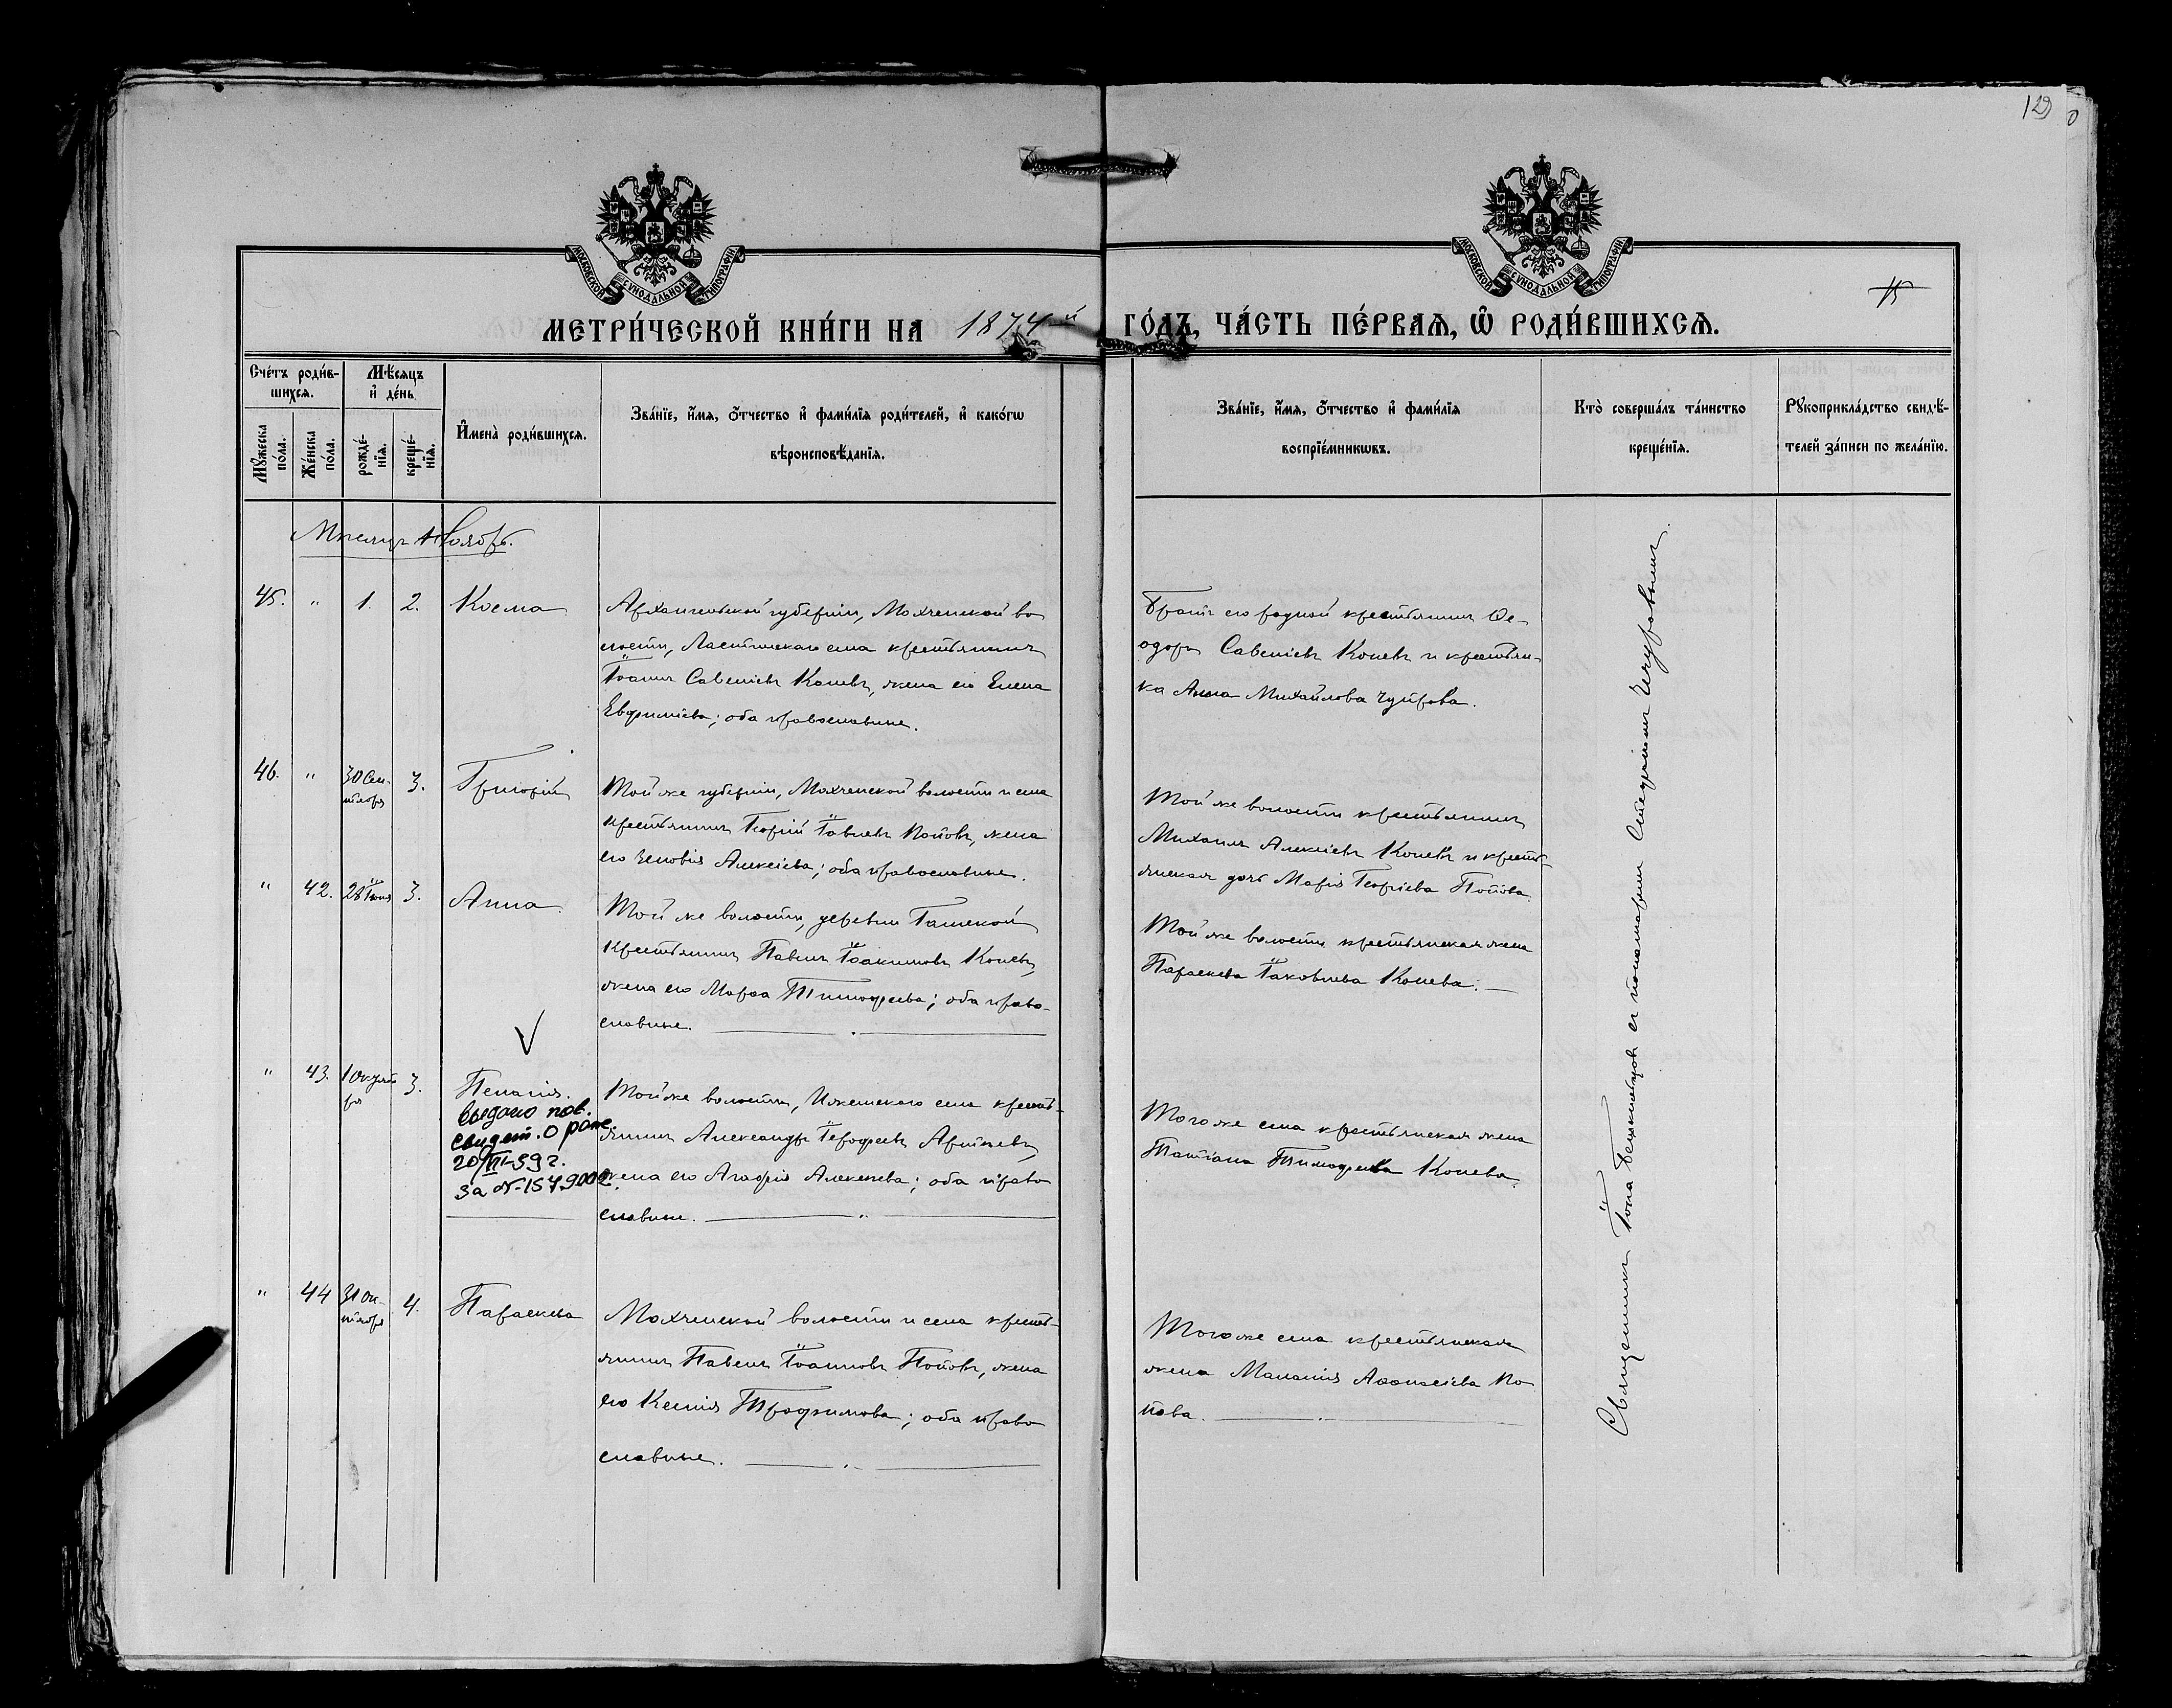 129
МОСКОВСКОЙ СѴНОДАЛЬНОЙ ТИПОГРАФІИ
МОСКОВСКОЙ СѴНОДАЛЬНОЙ ТИПОГРАФІИ
15
МЕТРИ́ЧЕСКОЙ КНИ́ГИ НА 1874-й ГО́ДЪ, ЧА́СТЬ ПЕ́РВАЯ, Ѡ҆ РОДИ́ВШИХСЯ.
Сче́тъ роди́в-
шихся.
Мꙋ́жеска по́ла.
Же́нска по́ла.
Мѣ́сяцъ
и҆ де́нь
рожде́-
нїя.
креще́-
нїя.
И҆мена̀ роди́вшихся.
Зва́нїе, и҆́мя, ѻ҆́тчество и҆ фами́лїя роди́телей, и҆ како́гѡ
вѣроисповѣ́данїя.
Зва́нїе, и҆́мя, ѻ҆́тчество и҆ фами́лїя
воспрїе́мникѡвъ.
Кто̀ соверша́лъ та́инство
креще́нїя.
Рꙋкоприкла́дство свидѣ́-
телей за́писи по жела́нїю.
Мѣсяцъ Ноябрь.
45. " 1. 2. Косма
Архангельской губерніи, Мохченской во
лости, Ластинскаго села крестьянинъ
Іоаннъ Савеліевъ Коневъ, жена его Елена
Евфиміева; оба православные.
Братъ его родной крестьянинъ Ѳе-
одоръ Савеліевъ Коневъ и крестьян-
ка Анна Михайлова Чупрова.
46. " 30 Сен-
тября 3. Григорій
Той же губерніи, Мохченской волости и села
крестьянинъ Георгій Іовлевъ Поповъ, жена
его Зеновія Алексіева; оба православные.
Той же волости крестьянинъ
Михаилъ Алексіевъ Коневъ и кресть-
янская дочь Марія Георгіева Попова
" 42. 28 Іюня 3. Анна.
Той же волости, деревни Гамской
крестьянинъ Павелъ Іоакимовъ Коневъ,
жена его Марѳа Тимофеева; оба право-
славные.
Той же волости крестьянская жена
Параскева Іаковлева Конева.
" 43. 1 Октяб
ря 3. Пелагія.
выдано пов.
свидет. о рож.
20/III-39 г.
за №-1579002.
Той же волости, Ижемскаго села кресть-
янинъ Александръ Іерофеевъ Артѣевъ,
жена его Агафія Алексеева; оба право
славные.
Того же села крестьянская жена
Татіана Тимофеева Конева.
" 44 31 Ок-
тября 4. Параскева
Мохченской волости и села кресть-
янинъ Павелъ Іоанновъ Поповъ, жена
его Ксенія Трофимова; оба право
славные.
Того же села крестьянская
жена Маланія Аѳанасіева По
пова.
Священникъ Іона съ пономаремъ